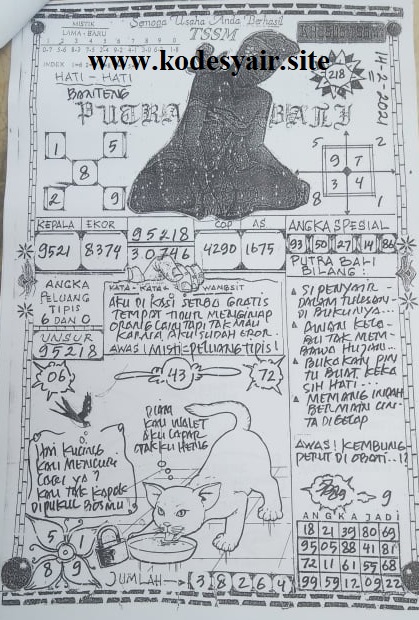 MISTIK
Semoga Usaha Anda Berhasil
TSSM
LAMA - BARU
1 2 3 4 5 6 7 8 9 0
INDEX
www.kodesyair.site
HATI - HATI
BANTENG
PUTRA BALI
218
14-2-2021
1 5
8
2 9
5 2
9 7
3 4
8 1
KEPALA EKOR
9521 8374
95218
30746
COP AS
4290 1675
ANGKA SPESIAL
93 50 27 14 86
PUTRA BALI
BILANG :
ANGKA
PELUANG
TIPIS
6 DAN 0
UNSUR
95218
KATA - KATA WANGSIT
AKU DI KASI SERBA GRATIS
TEMPAT TIDUR MENGINAP
ORANG LAIN TAPI TAK MAU
KARNA AKU SUDAH EROR.
AWAS! MISTI = PELUANG TIPIS!
SI PENYAIR
DALAM TULISAN
DI BUKUNYA...
ANGIN
TAK MEM-
BAWA HUJAN...
BUKAKAN PIN
TU BUAT KEKA
SIH HATI...
MEMANG INDAH
BERMAIN CIN-
TA DI GELAP
AWAS! KEMBUNG
PERUT DI OBATI..!!
06
43
72
DIAM
KAU WALET
AKU LAPAR
OTAKKU HENG
HAI KUCING
KAU MENCURI
LAGI YA ?
KAU TAK KAPOK
DIPUKUL BOSMU
9
5 1
8 9
ANGKA JADI
18 21 39 80 69
95 05 88 41 81
72 11 61 55 68
99 59 12 09 22
JUMLAH → 3 8 2 6 4